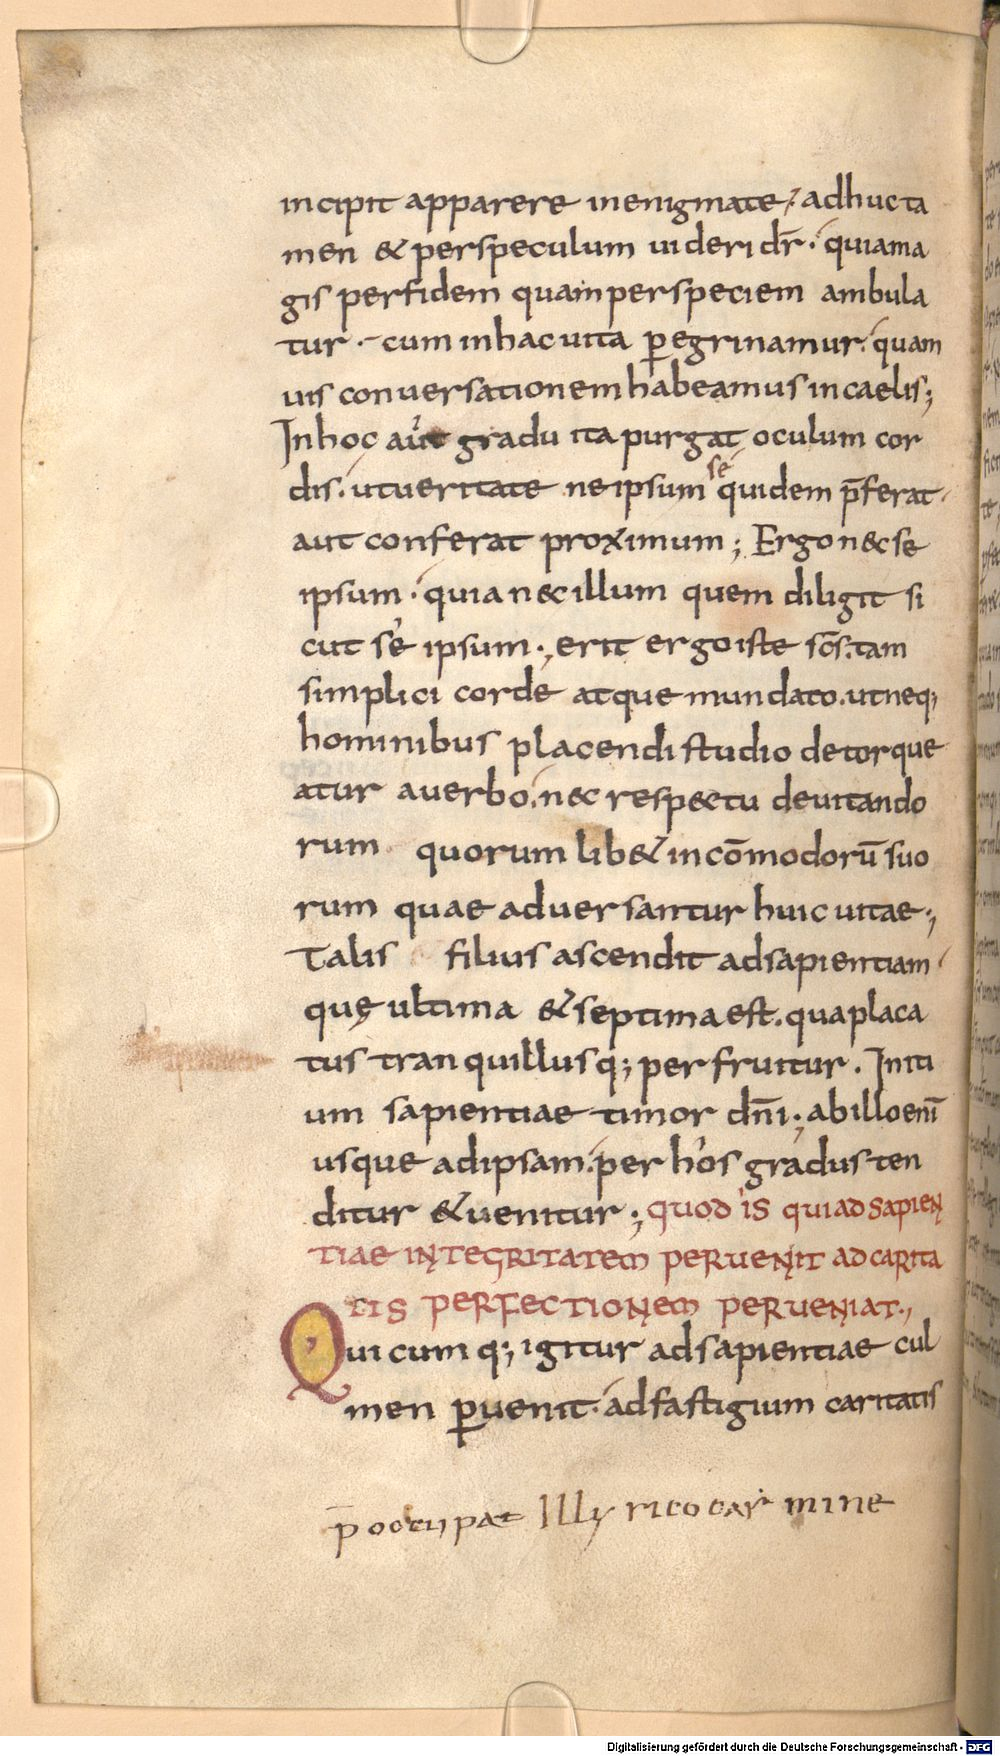 incipit apparere inenigmate. adhucta
men & perspeculum uideri dr̄. quiama
gis perfidem quam perspeciem ambula
tur. cum inhacuita ꝑegrinamur. quam
uis conuersationem habeamus incaelis;
Inhoc aut gradu ita purgat oculum cor
dis. utueritate neipsum sé quidem p̄ferat
aut conferat proximum; Ergo necse
ipsum. quia necillum quem diligit si
cut sé ipsum; erit ergo iste sc̄s. tam
simplici corde atque mundato. utneq;
hominibus placendi studio detorque
atur auerbo. nec respectu deuitando
rum quorum lib& incōmodorū suo
rum quae aduersantur huic uitae;
Talis filius ascendit adsapientiam
quę ultima & septima est. quaplaca
tus tranquillusq; perfruitur. Initi
um sapientiae timor dn̄i; abillo enī
usque adipsam. per hos gradus ten
ditur & uenitur; quod is qui ad sapien
tiae integritatem peruenit ad carita
tis perfectionem perueniat.,
Quicumq; igitur adsapientiae cul
men ꝑuenit. adfastigium caritatis
p̄occupat Illyrico carmine
Digitalisierung gefördert durch die Deutsche Forschungsgemeinschaft - DFG